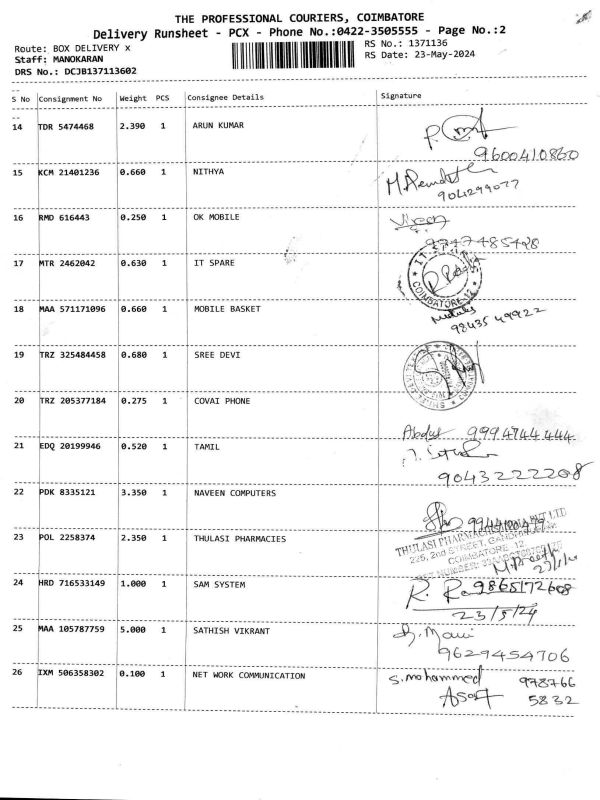 THE PROFESSIONAL COURIERS, COIMBATORE
Delivery Runsheet - PCX - Phone No.:0422-3505555 - Page No.:2
Route: BOX DELIVERY x
RS No.: 1371136
Staff: MANOKARAN
RS Date: 23-May-2024
DRS No.: DCJB137113602
S No Consignment No Weight PCS Consignee Details Signature
14 TDR 5474468 2.390 1 ARUN KUMAR
9600410860
15 KCM 21401236 0.660 1 NITHYA
9041299077
16 RMD 616443 0.250 1 OK MOBILE
9747485428
17 MTR 2462042 0.630 1 IT SPARE
COIMBATORE-12
18 MAA 571171096 0.660 1 MOBILE BASKET
98435 49922
19 TRZ 325484458 0.680 1 SREE DEVI
20 TRZ 205377184 0.275 1 COVAI PHONE
Abdul 9994744444
21 EDQ 20199946 0.520 1 TAMIL
9043222208
22 PDK 8335121 3.350 1 NAVEEN COMPUTERS
23 POL 2258374 2.350 1 THULASI PHARMACIES
THULASI PHARMACIES PVT LTD
225, 2nd STREET, GANDHI
COIMBATORE 12
24 HRD 716533149 1.000 1 SAM SYSTEM
9865172608
23/5/24
25 MAA 105787759 5.000 1 SATHISH VIKRANT
9629454706
26 IXM 506358302 0.100 1 NET WORK COMMUNICATION
S. mohammed 978766
5832